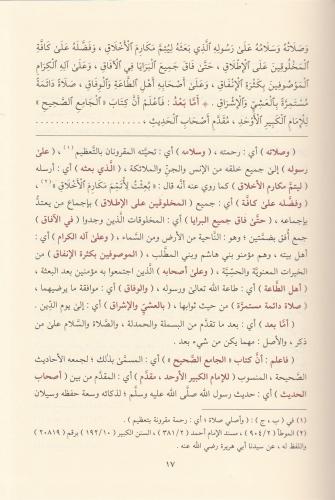 وَصَلَاتُهُ وَسَلَامُهُ عَلَىٰ رَسُولِهِ ٱلَّذِي بَعَثَهُ لِيُتِمَّ مَكَارِمَ ٱلْأَخْلَاقِ ، وَفَضَّلَهُ عَلَىٰ كَافَّةِ
ٱلْمَخْلُوقِينَ عَلَى ٱلْإِطْلَاقِ ، حَتَّىٰ فَاقَ جَمِيعَ ٱلْبَرَايَا فِي ٱلْآفَاقِ ، وَعَلَىٰ آلِهِ ٱلْكِرَامِ
ٱلْمَوْصُوفِينَ بِكَثْرَةِ ٱلْإِنْفَاقِ ، وَعَلَىٰ أَصْحَابِهِ أَهْلِ ٱلطَّاعَةِ وَٱلْوِفَاقِ ، صَلَاةً دَائِمَةً
مُسْتَمِرَّةً بِٱلْعَشِيِّ وَٱلْإِشْرَاقِ . * أَمَّا بَعْدُ : فَٱعْلَمْ أَنَّ كِتَابَ « ٱلْجَامِعِ ٱلصَّحِيحِ »
لِلْإِمَامِ ٱلْكَبِيرِ ٱلْأَوْحَدِ ، مُقَدَّمِ أَصْحَابِ ٱلْحَدِيثِ ، . . . . . . . . . . . . . . . . . . . .
( وصلاته ) أي : رحمته ، ( وسلامه ) أي : تحيَّته المقرونان بالتَّعظيم(١) ، ( علىٰ
رسوله ) إلىٰ جميع خلقه من الإنس والجنّ والملائكة ، ( الَّذي بعثه ) أي : أرسله
( ليتمَّ مكارم الأخلاق ) كما روي عنه أنَّه قال : « بُعِثْتُ لِأُتَمِّمَ مَكَارِمَ الأَخْلَاقِ »(٢) ،
( وفضَّله علىٰ كافَّة ) أي : جميع ( المخلوقين على الإطلاق ) بإجماع من يعتدُّ
بإجماعه ، ( حتَّىٰ فاق جميع البرايا ) أي : المخلوقات الَّذين وجدوا ( في الآفاق )
جمع أُفق بضمَّتين ؛ وهو : النَّاحية من الأرض ومن السَّماء ، ( وعلىٰ آله الكرام ) أي :
أهل بيته ، وهم مؤمنو بني هاشم وبني المطَّلب ، ( الموصوفين بكثرة الإنفاق ) من
الخيرات المعنويَّة والحسّيَّة ، ( وعلىٰ أصحابه ) الَّذين اجتمعوا به مؤمنين بعد البعثة ،
( أهل الطَّاعة ) أي : طاعة الله تعالىٰ ورسوله ، ( والوفاق ) أي : موافقة ما يرضيهما ،
( صلاة دائمة مستمرَّة ) من حيث ثوابها ، ( بالعشيّ والإشراق ) أي : إلىٰ يوم الدّين .
( أمَّا بعد ) أي : بعد ما تقدَّم من البسملة والحمدلة ، والصَّلاة والسَّلام علىٰ من
ذكر ، والأصل : مهما يكن من شيء بعد .
( فاعلم : أنَّ كتاب « الجامع الصَّحيح » ) أي : المسمَّىٰ بذلك ؛ لجمعه الأحاديث
الصَّحيحة ، المنسوب ( للإمام الكبير الأوحد ، مقدَّم ) أي : المقدَّم من بين ( أصحاب
الحديث ) أي : حديث رسول الله صلَّى الله عليه وسلَّم ؛ لذكائه وسعة حفظه وسيلان
(١) في ( ب ، ج ) : ( وأصلي صلاة ؛ أي : رحمة مقرونة بتعظيم ) .
(٢) الموطأ ( ٩٠٤/٢ ) ، مسند الإمام أحمد ( ٣٨١/٢ ) ، السنن الكبير ( ١٩٢/١٠ ) برقم ( ٢٠٨١٩ )
واللفظ له ، عن سيدنا أبي هريرة رضي الله عنه .
١٧